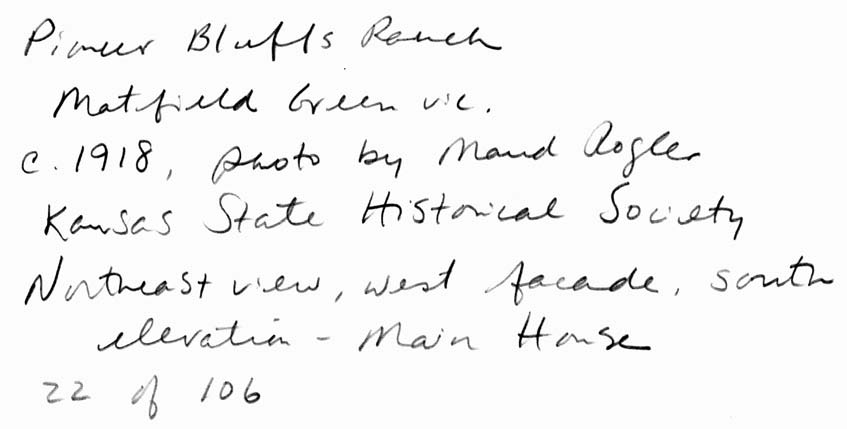 Pioneer Bluffs Ranch
Matfield Green vic.
c. 1918, photo by Maud Rogler
Kansas State Historical Society
Northeast view, west facade, south
elevation - Main House
22 of 106